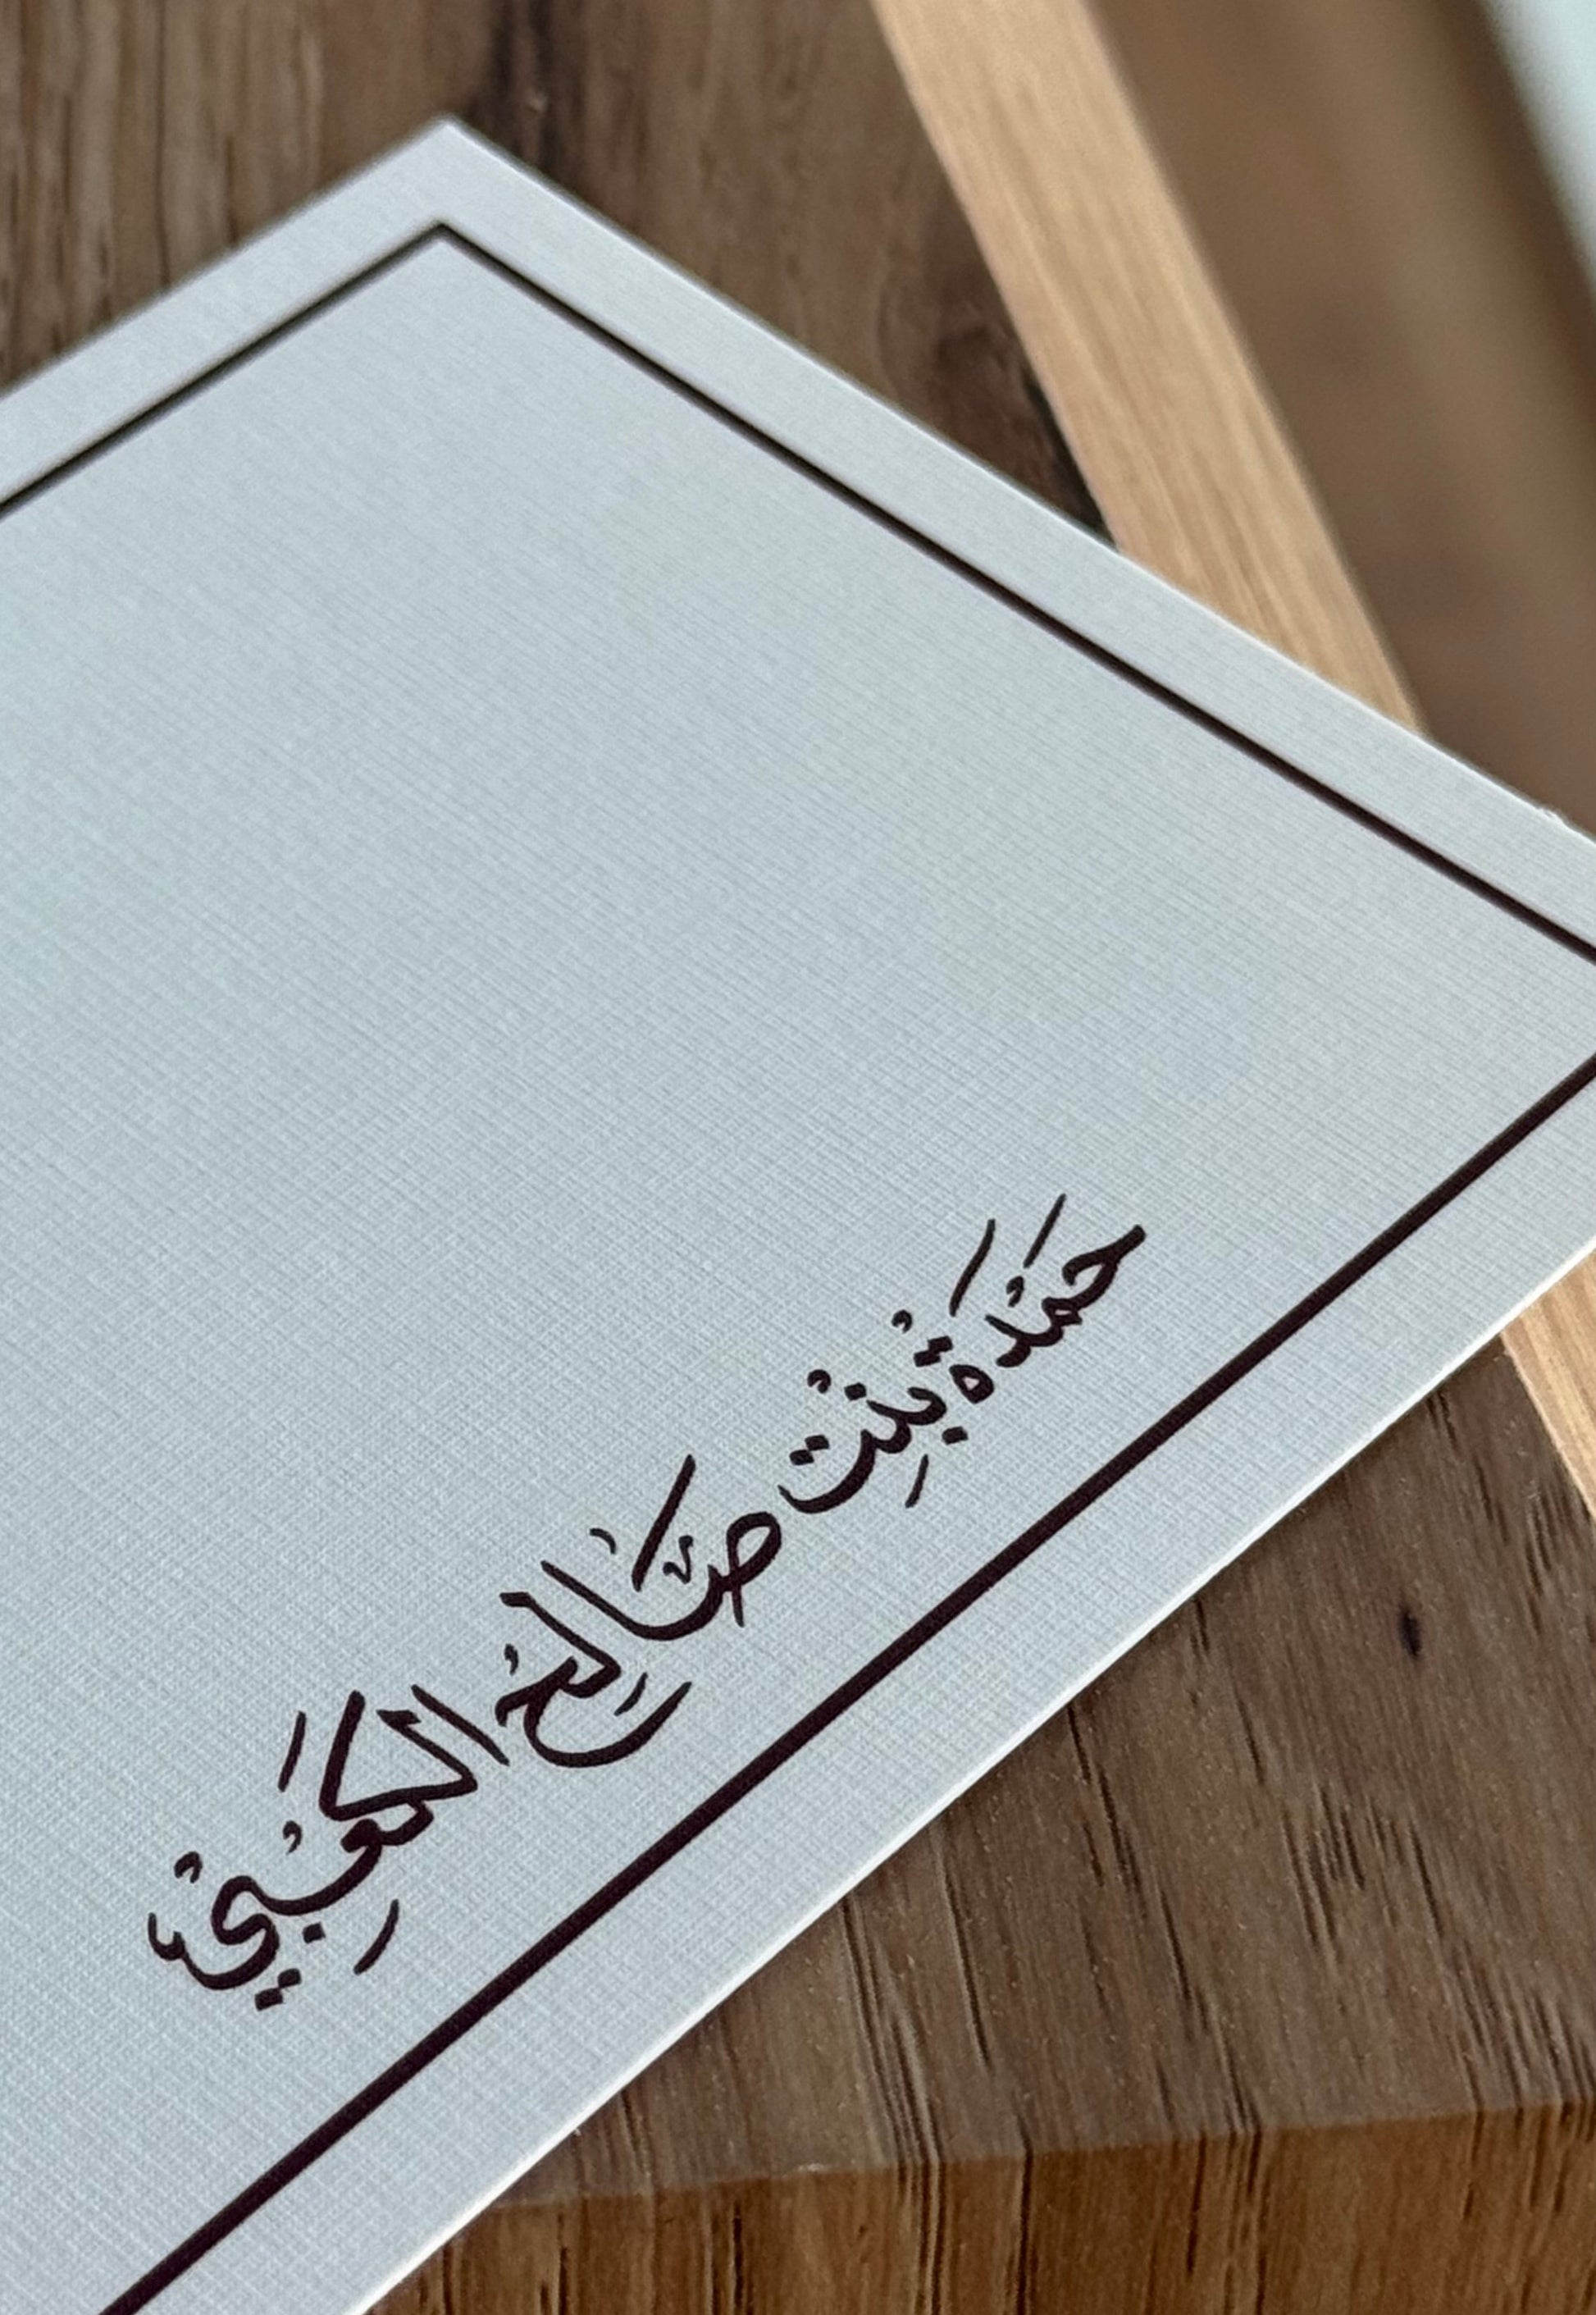 حَمْدَة بْنِتْ صَالِحْ الكَعْبِيْ